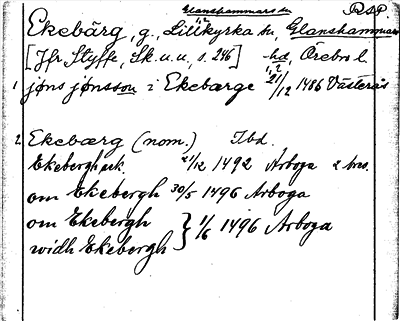 Glanshammars sn RSP.
Ekebärg, g. Lillkyrka sn, Glanshammars
[Jfr Styffe, Sk. u. u, s. 246] hd, Örebro l.
1 jøns jønsson i Ekebærge 21/12 1486 Västerås
2 Ekebærg (nom.) Ibd.
Ekebergh 21/12 1492 Arboga 2 brev.
om Ekebergh 30/5 1496 Arboga
om Ekebergh } 1/6 1496 Arboga
widh Ekebergh